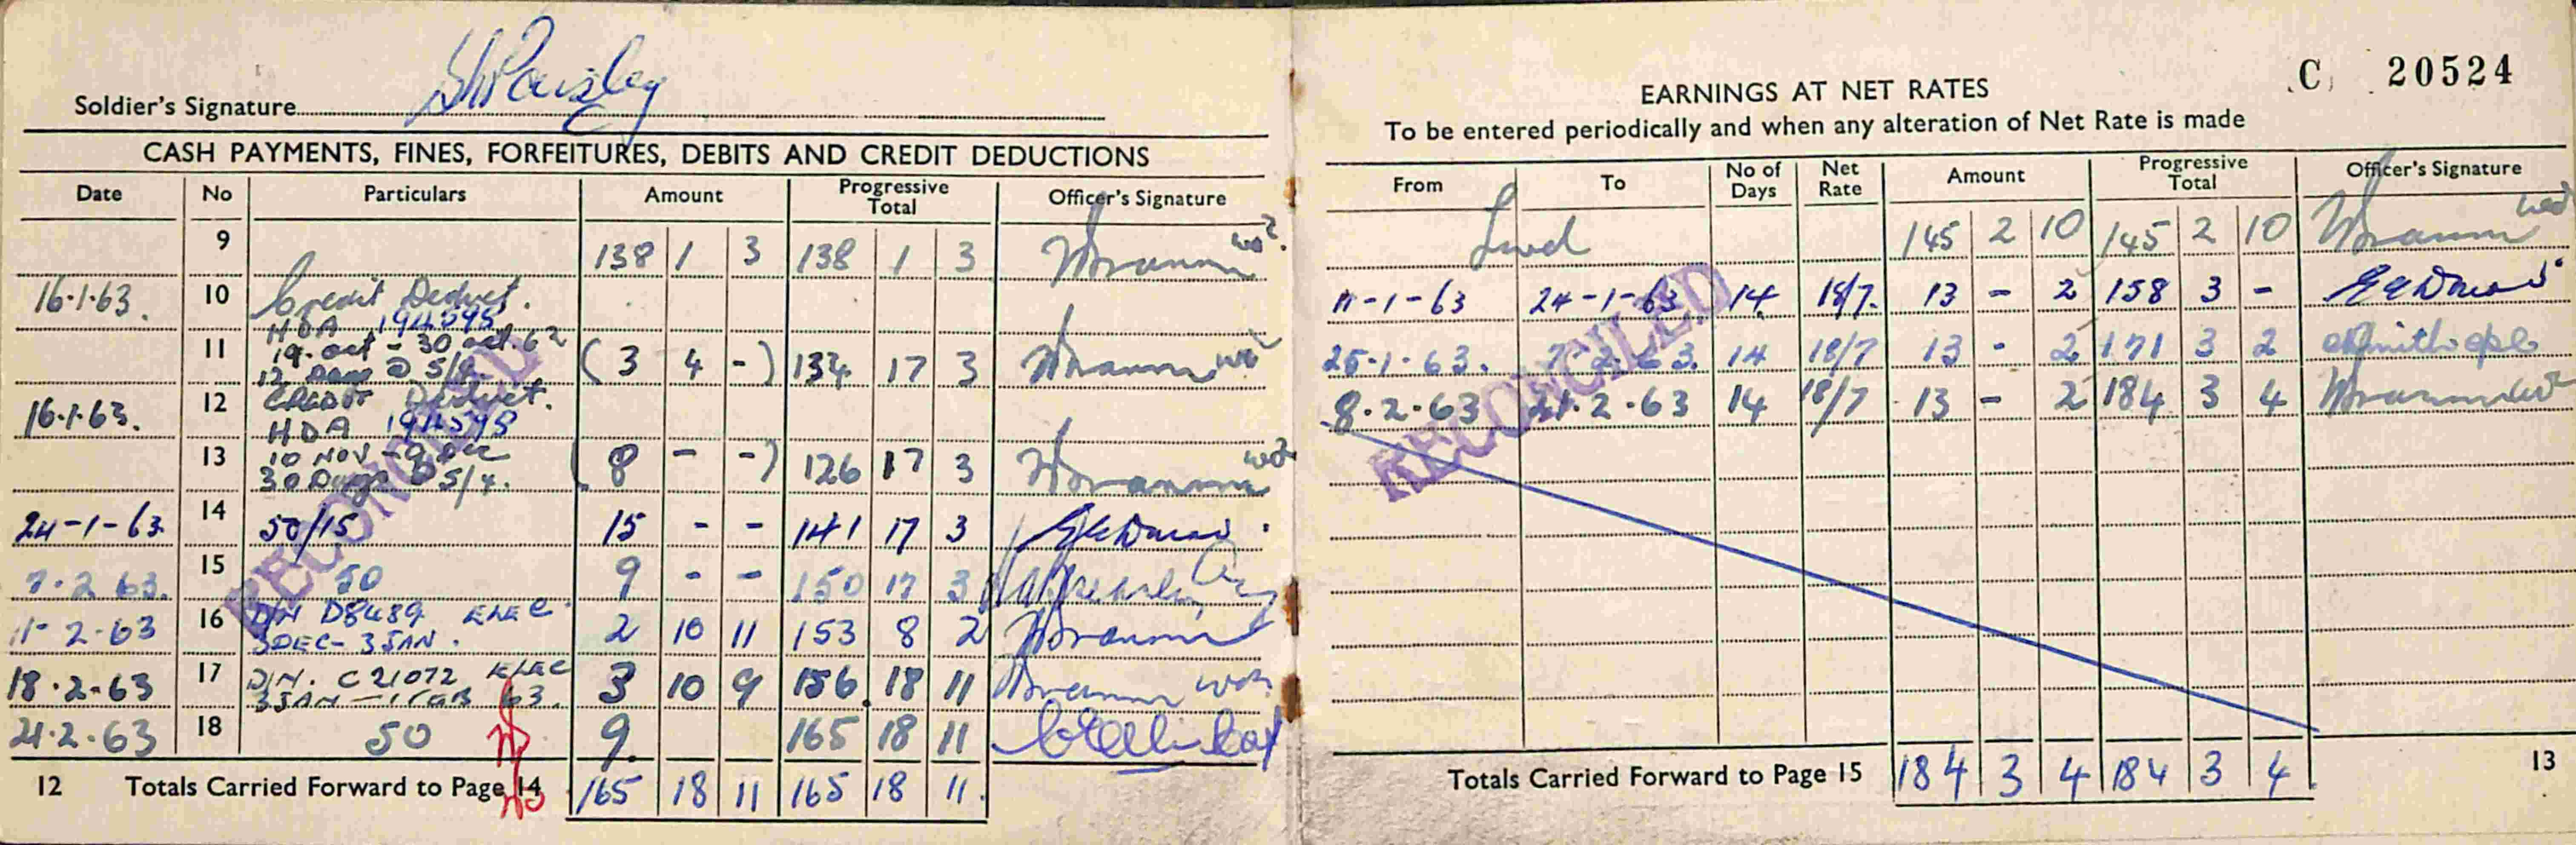 Soldier's Signature
CASH PAYMENTS, FINES, FORFEITURES, DEBITS AND CREDIT DEDUCTIONS
Date No Particulars Amount Progressive Total Officer's Signature
9 138 1 3 138 1 3
16.1.63. 10 Credit Deduct.
HDA 194598
11 19. oct - 30 oct. 62 (3 4 -) 134 17 3
12 Days @ 5/4
16.1.63. 12 CREDIT Deduct.
HDA 194598
13 10 NOV - 9 Dec (8 - -) 126 17 3
30 Days @ 5/4.
24-1-63. 14 50/15 15 - - 141 17 3
7.2.63. 15 50 9 - - 150 17 3
11-2-63 16 D/N D8489 ELEC. 2 10 11 153 8 2
3DEC-3JAN.
18.2-63 17 D/N. C21072 ELEC 3 10 9 156 18 11
3JAN - 63.
21.2.63 18 50 9. 165 18 11
RECONCILED
12 Totals Carried Forward to Page 14 165 18 11 165 18 11.
C 20524
EARNINGS AT NET RATES
To be entered periodically and when any alteration of Net Rate is made
From To No of Days Net Rate Amount Progressive Total Officer's Signature
145 2 10 145 2 10
11-1-63 24-1-63 14. 18/7. 13 - 2 158 3 -
25-1-63. 7-2-63. 14 18/7 13 - 2 171 3 2
8.2.63 21.2.63 14 18/7 13 - 2 184 3 4
RECONCILED
Totals Carried Forward to Page 15 184 3 4 184 3 4
13